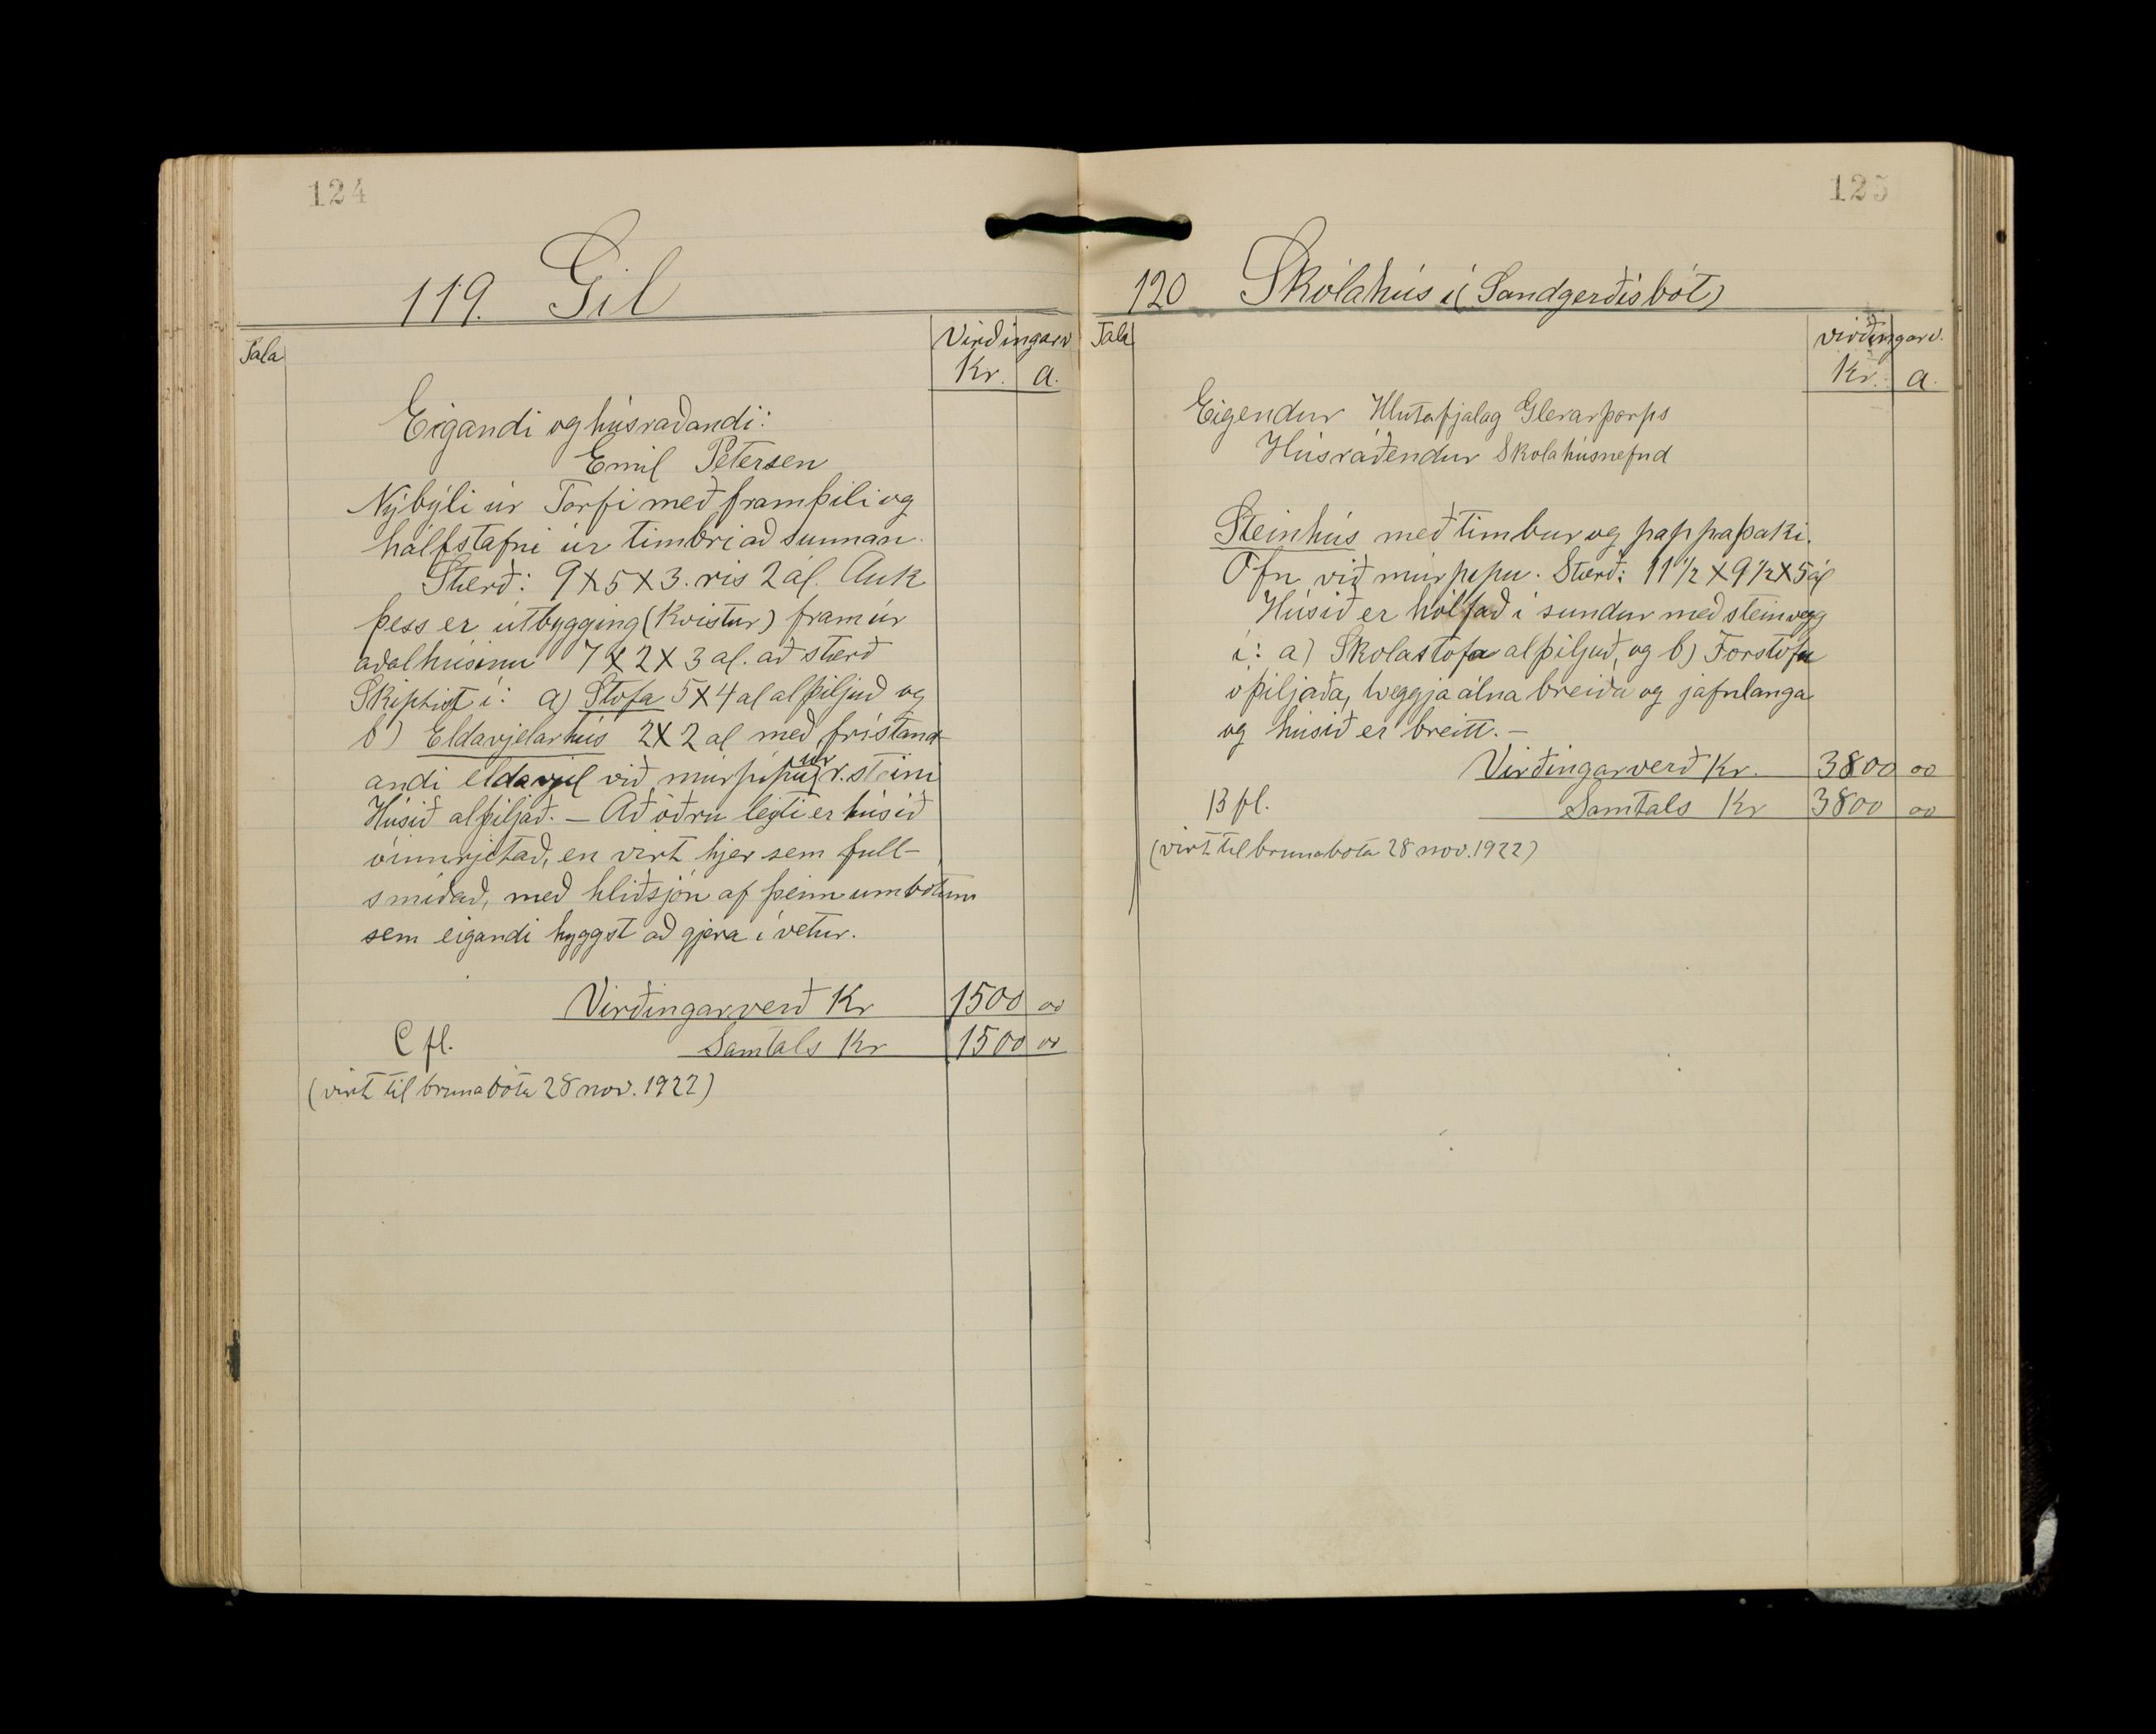 124
119. Gil
Tala
Virðingarv
Kr. a.
Eigandi og húsraðandi:
Emil Petersen
Nýbýli úr Torfi með framþili og
hálfstafni úr timbri að sunnan.
Stærð: 9X5X3. ris 2 al. Auk
þess er útbygging (Kvistur) framúr
aðalhúsinu 7X2X3 al. að stærð
Skiptist í: a) Stofa 5X4 al alþiljuð og
b) Eldavjelarhús 2X2 al með frístand
andi eldavjel við múrpípu úr r. steini
Húsið alþiljað. — Að öðru leyti er húsið
óinnrjetað, en virt hjer sem full-
smíðað, með hliðsjón af þeim umbótum
sem eigandi hyggst að gjera í vetur.
Virðingarverð Kr 1500 00
C fl. Samtals Kr 1500 00
(virt til brunabóta 28 nov. 1922)
125
120 Skólahús í (Sandgerðisbót)
Tala
Virðingarv.
Kr. a.
Eigendur Hlutafjalag Glerarþorps
Húsráðendur Skolahúsnefnd
Steinhús með timbur og pappaþaki.
Ofn við múrpípu. Stærð: 11 1/2 X 9 1/2 X 5 al
Húsið er hólfað í sundur með steinvegg
í: a) Skolastofa alþiljuð, og b) Forstofa
óþiljaða, tveggja álna breiða og jafnlanga
og húsið er breitt. —
Virðingarverð Kr. 3800 00
B fl. Samtals Kr 3800 00
(virt til brunabota 28 nov. 1922)